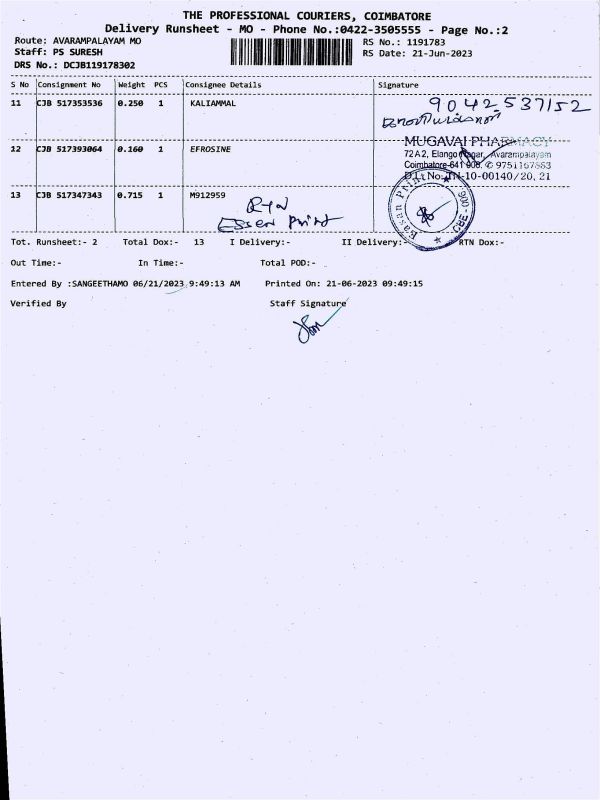 THE PROFESSIONAL COURIERS, COIMBATORE
Delivery Runsheet - MO - Phone No.:0422-3505555 - Page No.:2
Route: AVARAMPALAYAM MO RS No.: 1191783
Staff: PS SURESH RS Date: 21-Jun-2023
DRS No.: DCJB119178302
S No Consignment No Weight PCS Consignee Details Signature
11 CJB 517353536 0.250 1 KALIAMMAL 9042537152
12 CJB 517393064 0.160 1 EFROSINE
MUGAVAI PHARMACY
72A2, Elango Nagar, Avarampalayam
Coimbatore-641 006. ✆ 9751167863
D.L No.:TN-10-00140/20, 21
13 CJB 517347343 0.715 1 M912959
Essen Print
Tot. Runsheet:- 2 Total Dox:- 13 I Delivery:- II Delivery:- RTN Dox:-
Out Time:- In Time:- Total POD:-
Entered By :SANGEETHAMO 06/21/2023 9:49:13 AM Printed On: 21-06-2023 09:49:15
Verified By Staff Signature